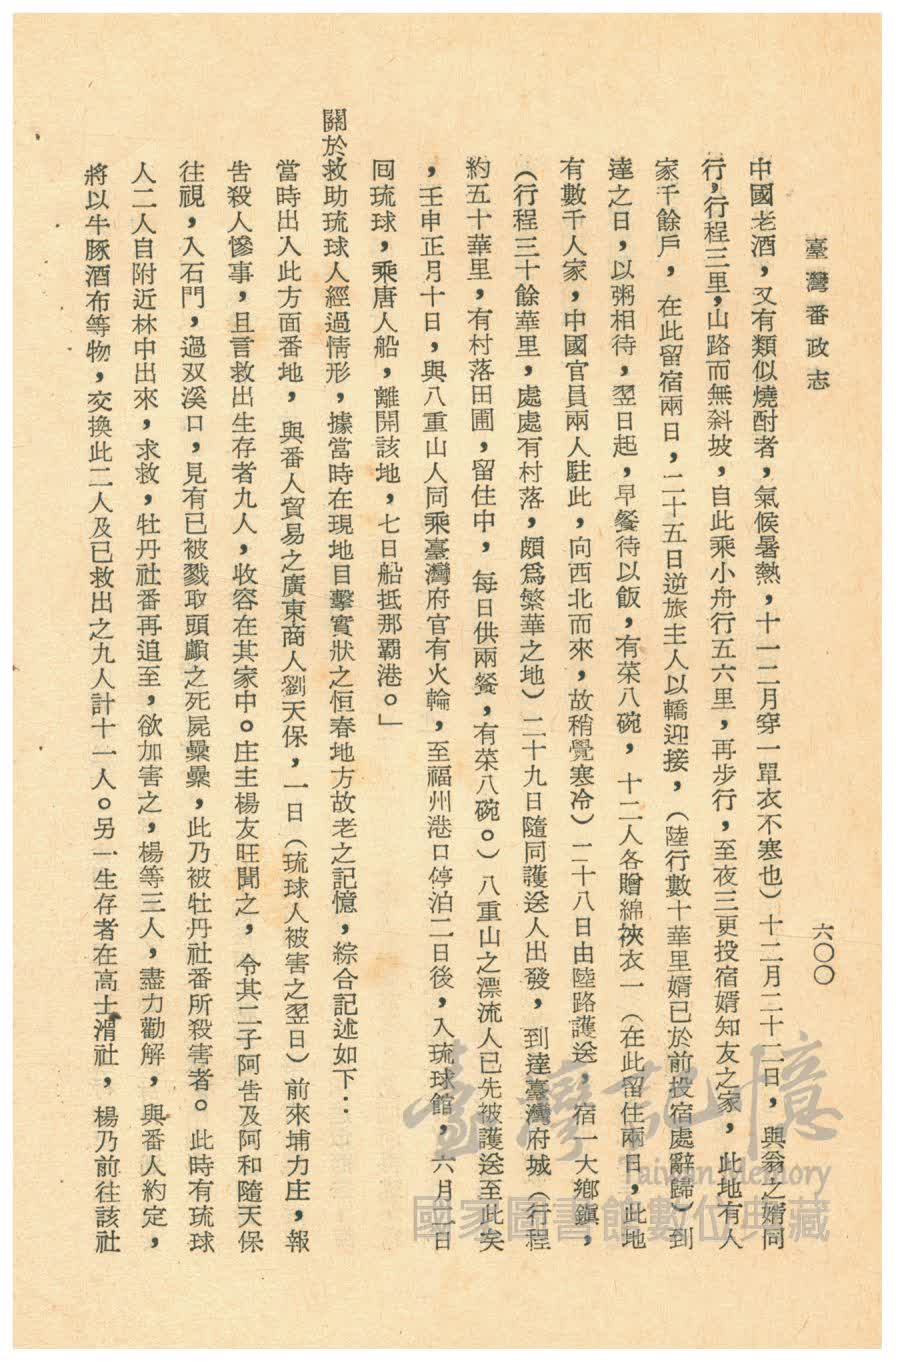 臺灣番政志
六〇〇
中國老酒，又有類似燒酎者，氣候暑熱，十一二月穿一單衣不寒也）十二月二十二日，與翁之婿同
行，行程三里，山路而無斜坡，自此乘小舟行五六里，再步行，至夜三更投宿婿知友之家，此地有人
家千餘戶，在此留宿兩日，二十五日逆旅主人以轎迎接，（陸行數十華里婿已於前投宿處辭歸）到
達之日，以粥相待，翌日起，早餐待以飯，有菜八碗，十二人各贈綿裌衣一（在此留住兩日，此地
有數千人家，中國官員兩人駐此，向西北而來，故稍覺寒冷）二十八日由陸路護送，宿一大鄉鎮，
（行程三十餘華里，處處有村落，頗爲繁華之地）二十九日隨同護送人出發，到達臺灣府城（行程
約五十華里，有村落田圃，留住中，每日供兩餐，有菜八碗。）八重山之漂流人已先被護送至此矣
，壬申正月十日，與八重山人同乘臺灣府官有火輪，至福州港口停泊二日後，入琉球館，六月二日
回琉球，乘唐人船，離開該地，七日船抵那霸港。」
關於救助琉球人經過情形，據當時在現地目擊實狀之恒春地方故老之記憶，綜合記述如下：
當時出入此方面番地，與番人貿易之廣東商人劉天保，一日（琉球人被害之翌日）前來埔力庄，報
告殺人慘事，且言救出生存者九人，收容在其家中。庄主楊友旺聞之，令其二子阿告及阿和隨天保
往視，入石門，過双溪口，見有已被戮取頭顱之死屍纍纍，此乃被牡丹社番所殺害者。此時有琉球
人二人自附近林中出來，求救，牡丹社番再追至，欲加害之，楊等三人，盡力勸解，與番人約定，
將以牛豚酒布等物，交換此二人及已救出之九人計十一人。另一生存者在高士滑社，楊乃前往該社
臺灣記憶
Taiwan Memory
國家圖書館數位典藏